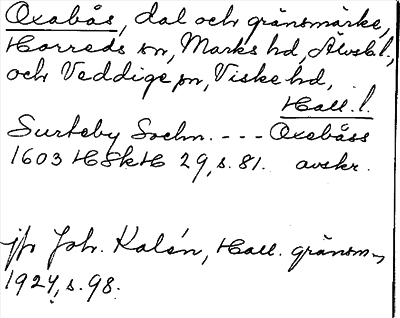 Oxabås, dal och gränsmärke,
Horreds sn, Marks hd, Älvsb l.,
och Veddige sn, Viske hd,
Hall. l.
Surteby Sochn. - - - Oxebåss
1603 HSkH 29, s. 81. avskr.
jfr Joh. Kalén, Hall. gränsm.,
1924, s. 98.